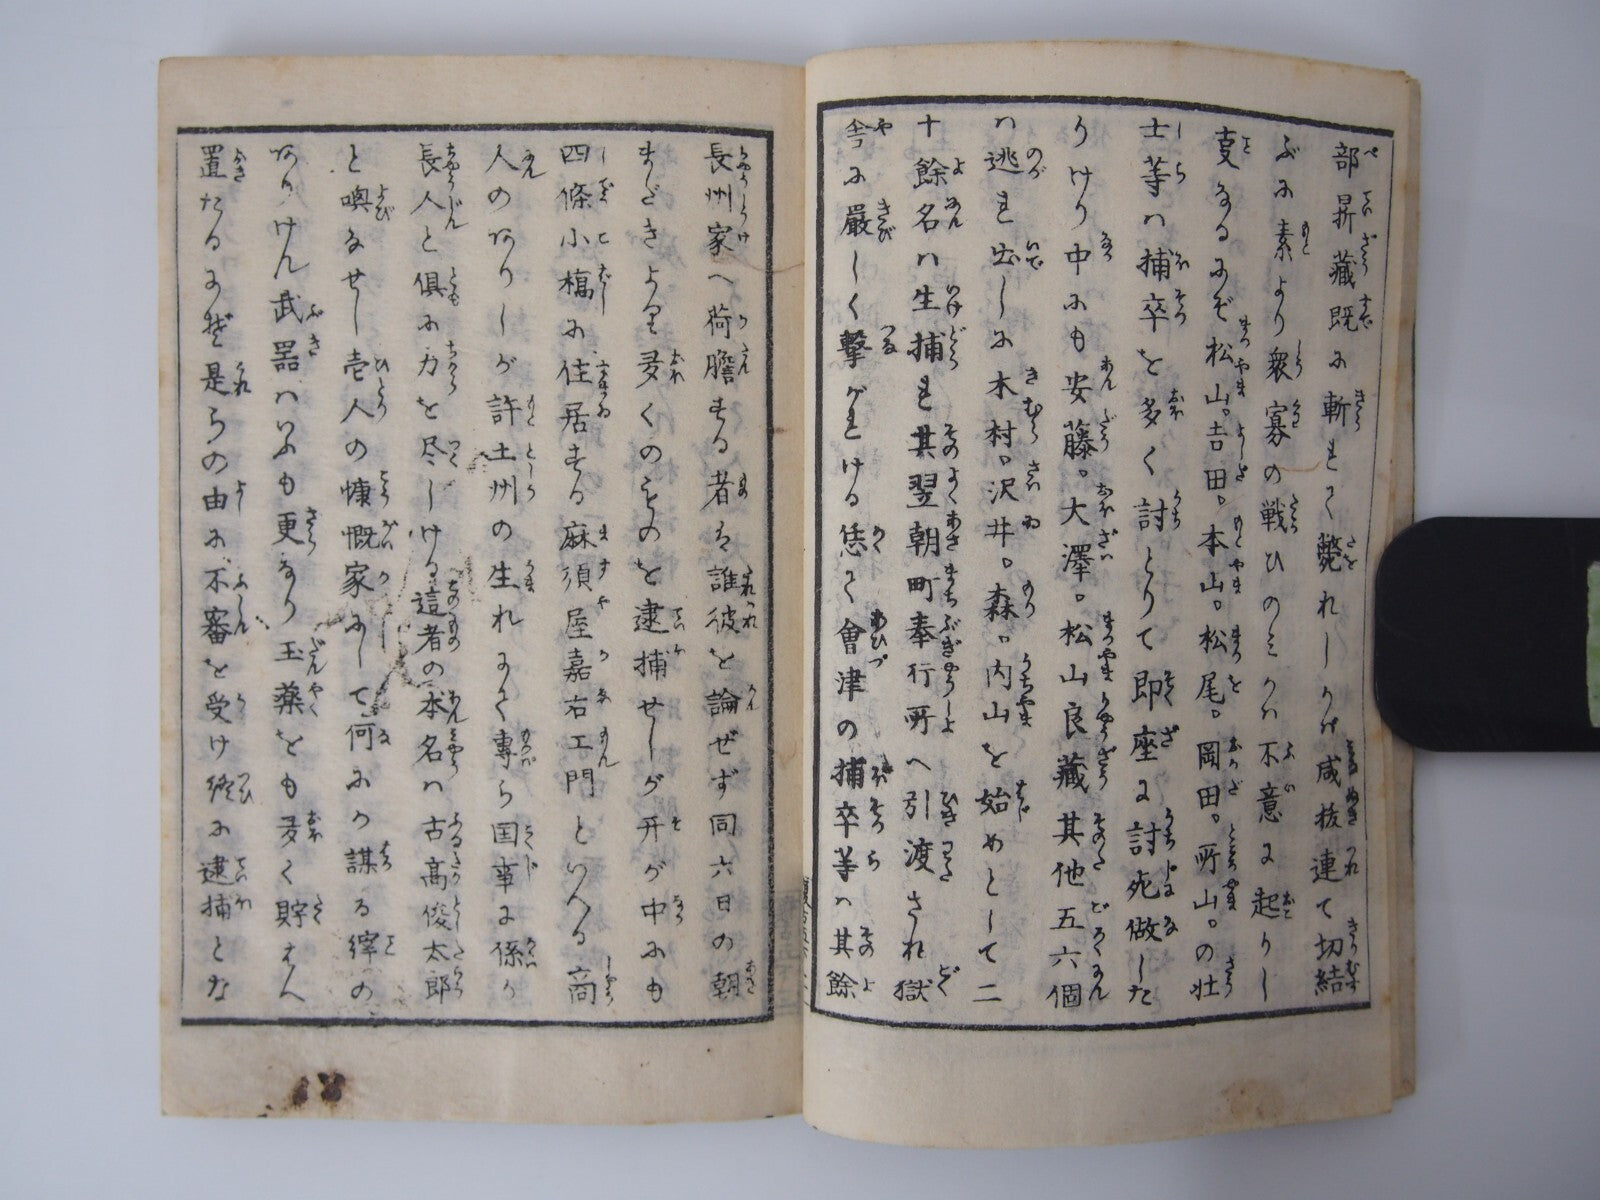 部昇藏既に斬もて斃れしりけ咸抜連て切結
ぶに素より衆寡の戦ひのミか不意に起りし
叓なるにぞ松山。吉田。本山。松尾。岡田。所山。の壮
士等ハ捕卒を多く討とりて即座に討死做した
りけり中にも安藤。大澤。松山良藏其他五六個
ハ逃も出しに木村。沢井。森。内山を始めとして二
十餘名ハ生捕も其翌朝町奉行所へ引渡され獄
舎に嚴しく撃がもける恁て會津の捕卒等ハ其餘
長州家へ荷膽する者を誰彼を論ぜず同六日の朝
まだきより多くのものを逮捕せしが开が中にも
四條小橋に住居する麻須屋嘉右エ門といへる商
人のありしが許土州の生れにて專ら国事に係り
長人と倶に力を尽しける這者の本名ハ古高俊太郎
と喚なせし壱人の慷慨家にして何にか謀る縡の
ありけん武噐ハいふも更なり玉薬をも多く貯へ
置たるにぞ是らの由に不審を受け終に逮捕とな